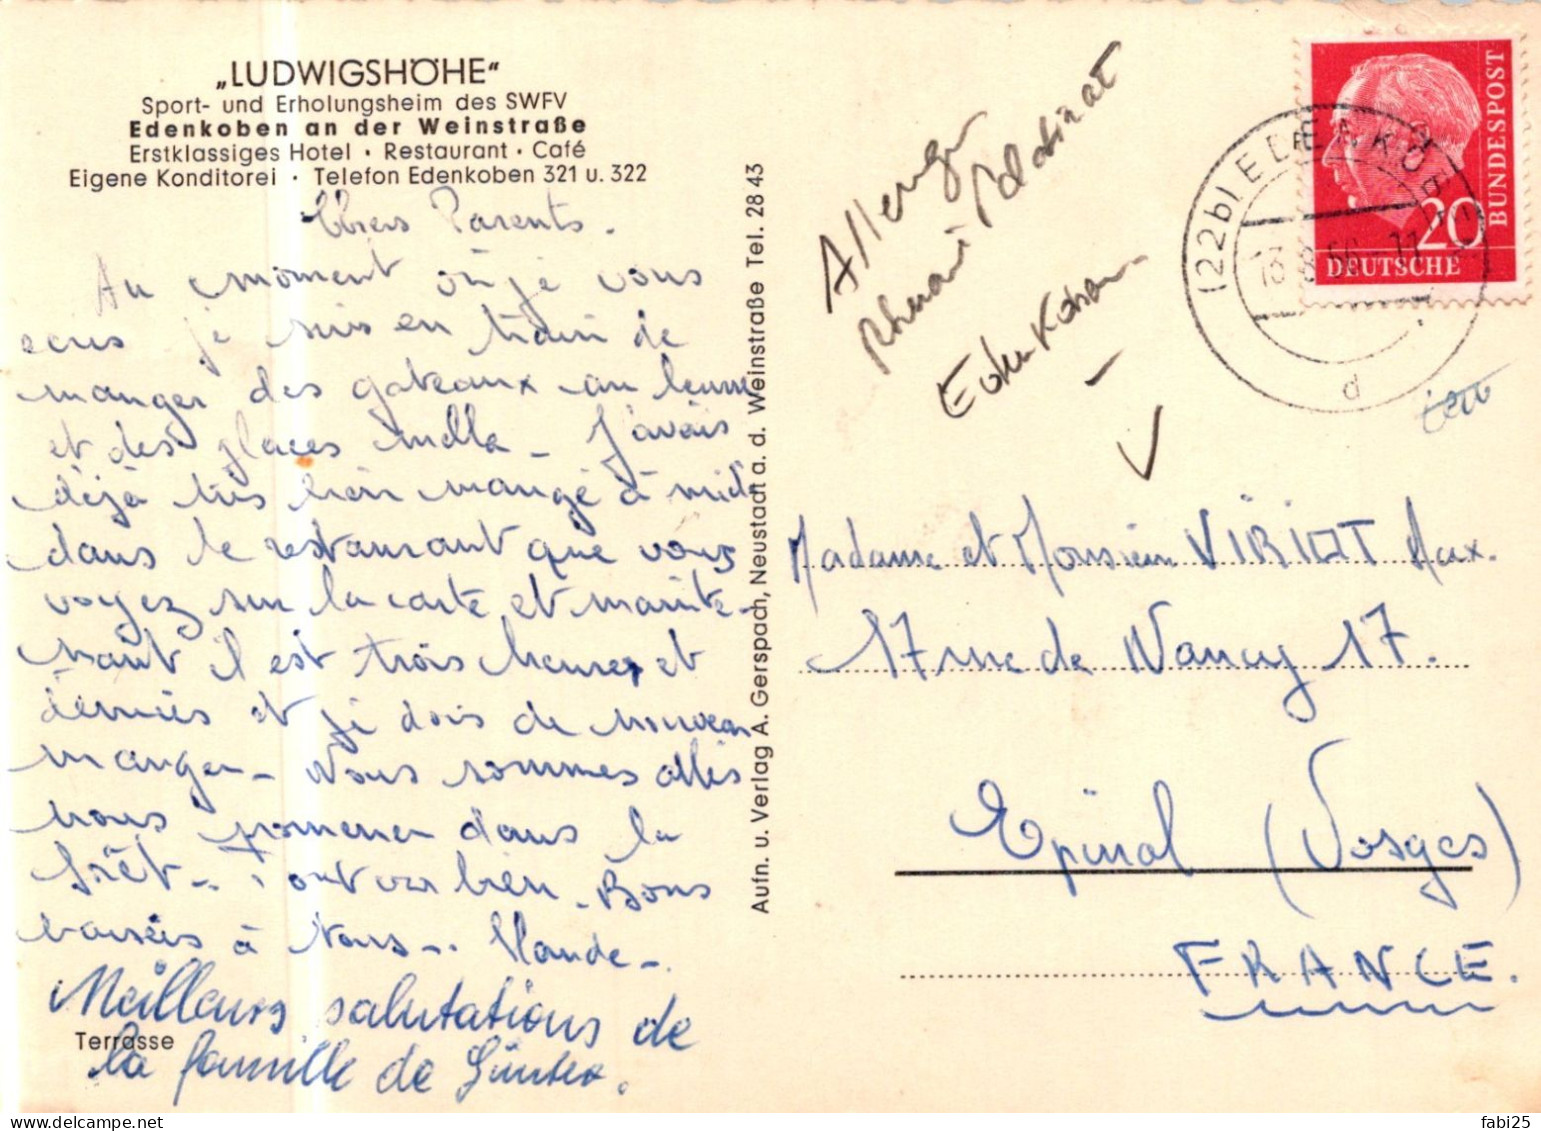 „LUDWIGSHÖHE“
Sport- und Erholungsheim des SWFV
Edenkoben an der Weinstraße
Erstklassiges Hotel · Restaurant · Café
Eigene Konditorei · Telefon Edenkoben 321 u. 322
Chers Parents.
Au moment où je vous
ecris je suis en train de
manger des gateaux au beurre
et des glaces _ J'avais
déjà très bien mangé à midi
dans le restaurant que vous
voyez sur la carte et mainte-
nant il est trois heures et
demies et je dois de nouveau
manger _ Nous sommes allés
nous promener dans la
forêt _ Tout va bien _ Bons
baisers à vous _ Claude _
Meilleurs salutations de
la famille de Günter.
Terrasse
Aufn. u. Verlag A. Gerspach, Neustadt a. d. Weinstraße Tel. 28 43
Allemagne
Rhenanie Palatinat
Edenkoben
DEUTSCHE
BUNDESPOST
20
(22b) EDENKOBEN
13.8.56-11
d
Madame et Monsieur VIRIOT Max.
17 rue de Nancy 17.
Epinal (Vosges)
FRANCE.
fabi25